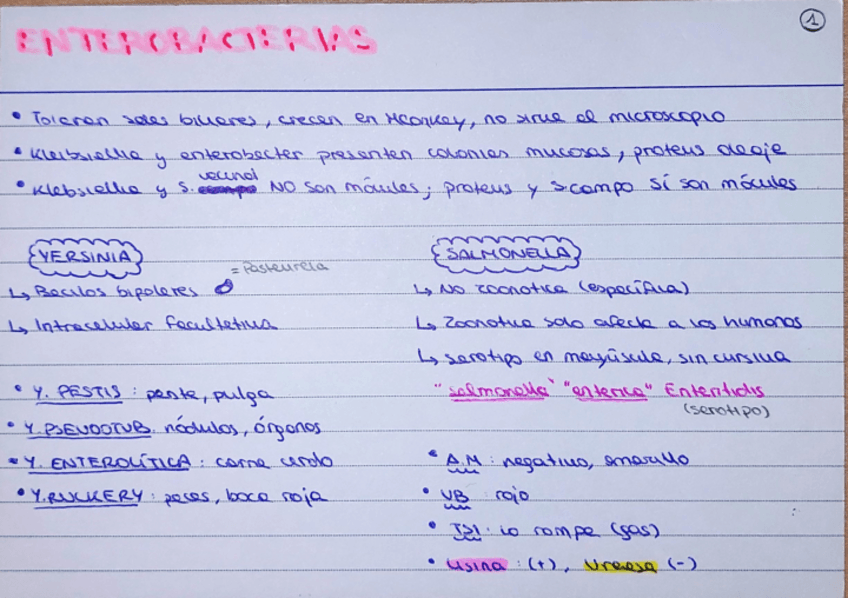 1
ENTEROBACTERIAS
• Toleran sales biliares, crecen en McConkey, no sirve el microscopio
• Klebsiella y enterobacter presentan colonias mucosas, proteus oleaje
• Klebsiella y S. vecunal NO son móviles; proteus y S campo sí son móviles
YERSINIA
= Pasteurela
↳ Bacilos bipolares
↳ Intracelular facultativa
• Y. PESTIS : peste, pulga
• Y. PSEUDOTUB. nódulos, órganos
• Y. ENTEROLÍTICA : carne cerdo
• Y. RUCKERY : peces, boca roja
SALMONELLA
↳ No zoonotica (específica)
↳ Zoonotica solo afecta a los humanos
↳ serotipo en mayúscula, sin cursiva
"salmonella" "enterica" Enteritidis
(serotipo)
• A.M : negativo, amarillo
• VB : rojo
• TSI : lo rompe (gas)
• Lisina : (+), Ureasa (-)